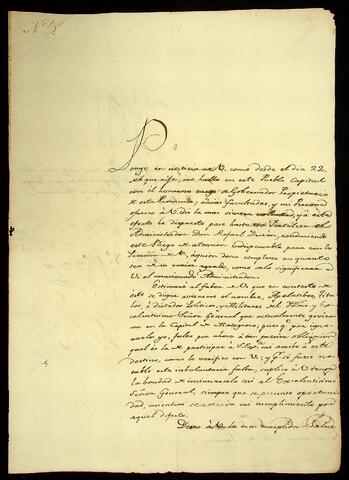 N.º 
Pongo en noticia de V. como desde el dia 22,
que rije, me hallo en este Pueblo Capital
con el honroso cargo de Gobernador Propietario
de esta Provincia, cuias facultades, y mi Persona
ofresco á V. con la mas sincera voluntad, y á este
efecto he dispuesto pase hasta su Fortaleza el
Administrador Don Rafael Durán, conduciendo
este Pliego de atencion indispensable para con la
Persona de V, aquien deseo complacer en quanto
sea de su maior agrado, como solo significara á
V. el mencionado Administrador.
Estimaré al fabor de V. que en contexto de
este se digne avisarme el nombre, Apelativo, Titu-
los, ó dictados Politicos, y Militares del Ylmo, y Ex-
celentisimo Señor General que actualmente govier-
na en la Capital de pues q. por igno-
rarlo yo, falto por ahora á tan precisa obligacion
qual és la de participar á V. mi arribo á este
destino, como lo verifico con V; y q. si fuese no-
table esta imboluntaria falta, suplico á V. tenga
la bondad de insinuarselo asi al Excelentisimo
Señor General, siempre que se presente oportuni-
dad, mientras mi cumplimiento por
aquel defecto.
Deseo á V. la mas cumplida Salud